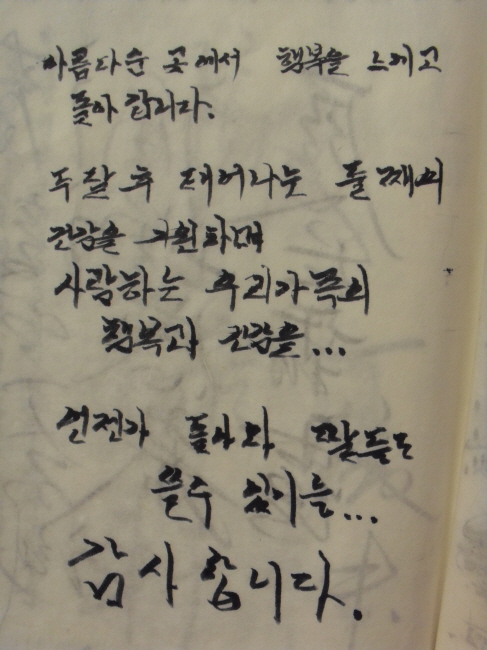 아름다운 곳에서 행복을 느끼고
돌아 갑니다.
두달 후 태어나는 둘째의
건강을 기원하며
사랑하는 우리가족의
행복과 건강을...
언젠가 돌아와 말들도
쓸수 있기를...
감사합니다.